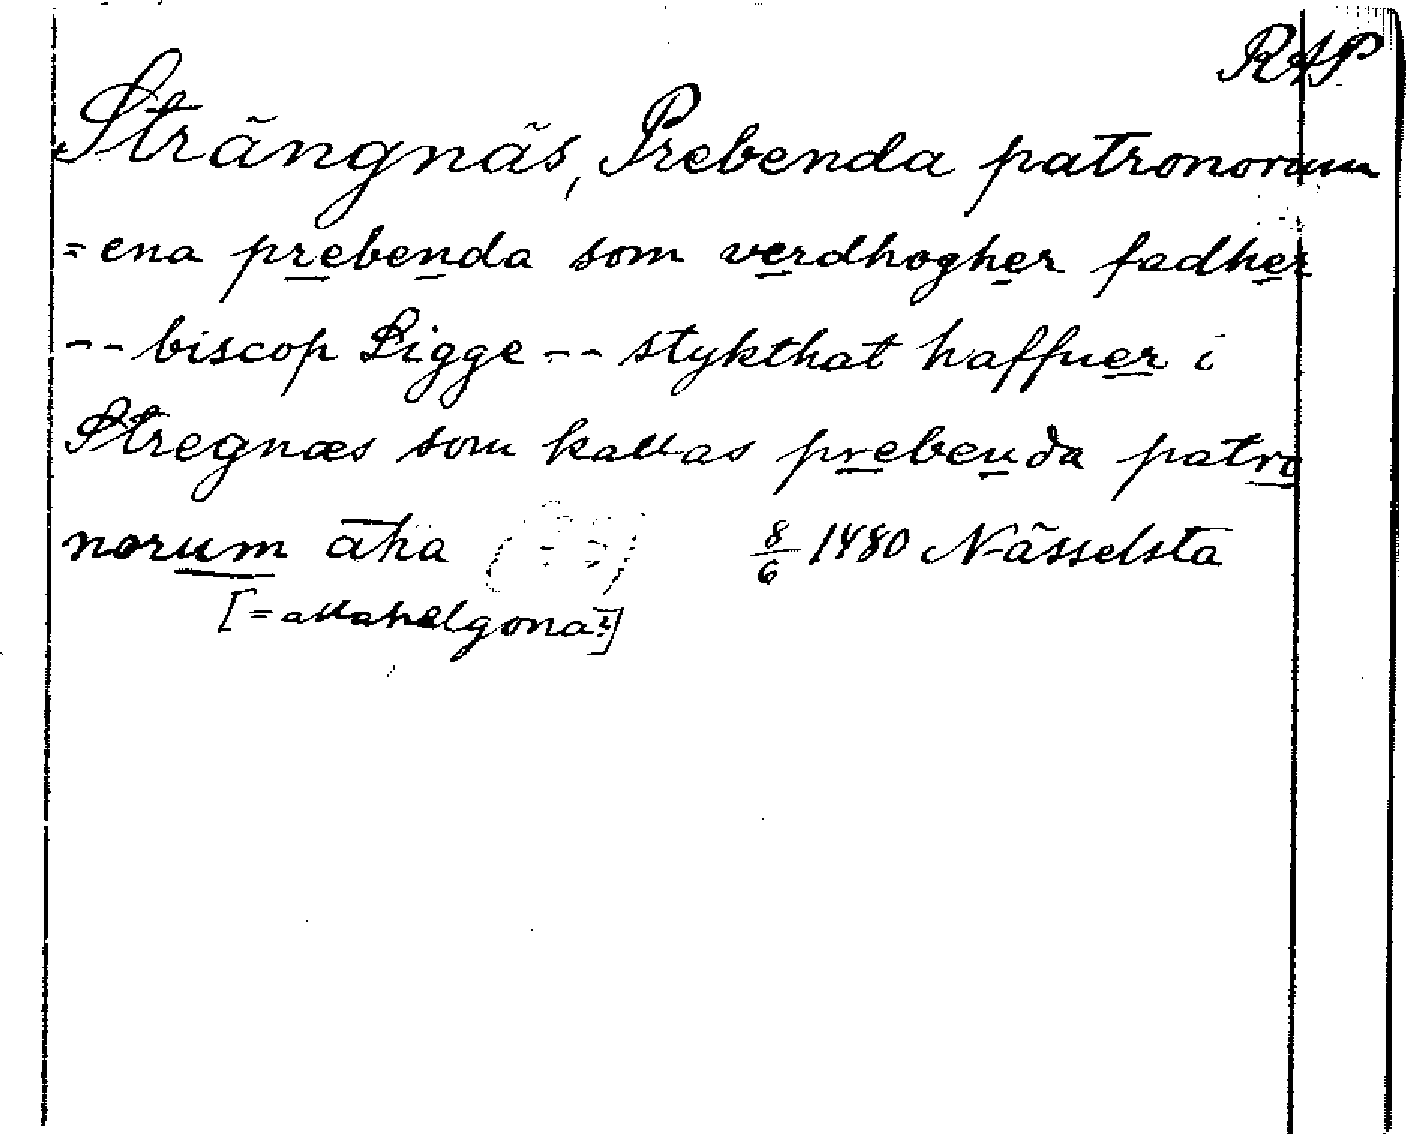 RAP
Strängnäs, Prebenda patronorum
= ena prebenda som verdhogher fadher
-- biscop Sigge -- stykthat haffuer i
Stregnæs som kallas prebenda patro
norum aha
8/6 1480 Nässelsta
[= allahelgona?]